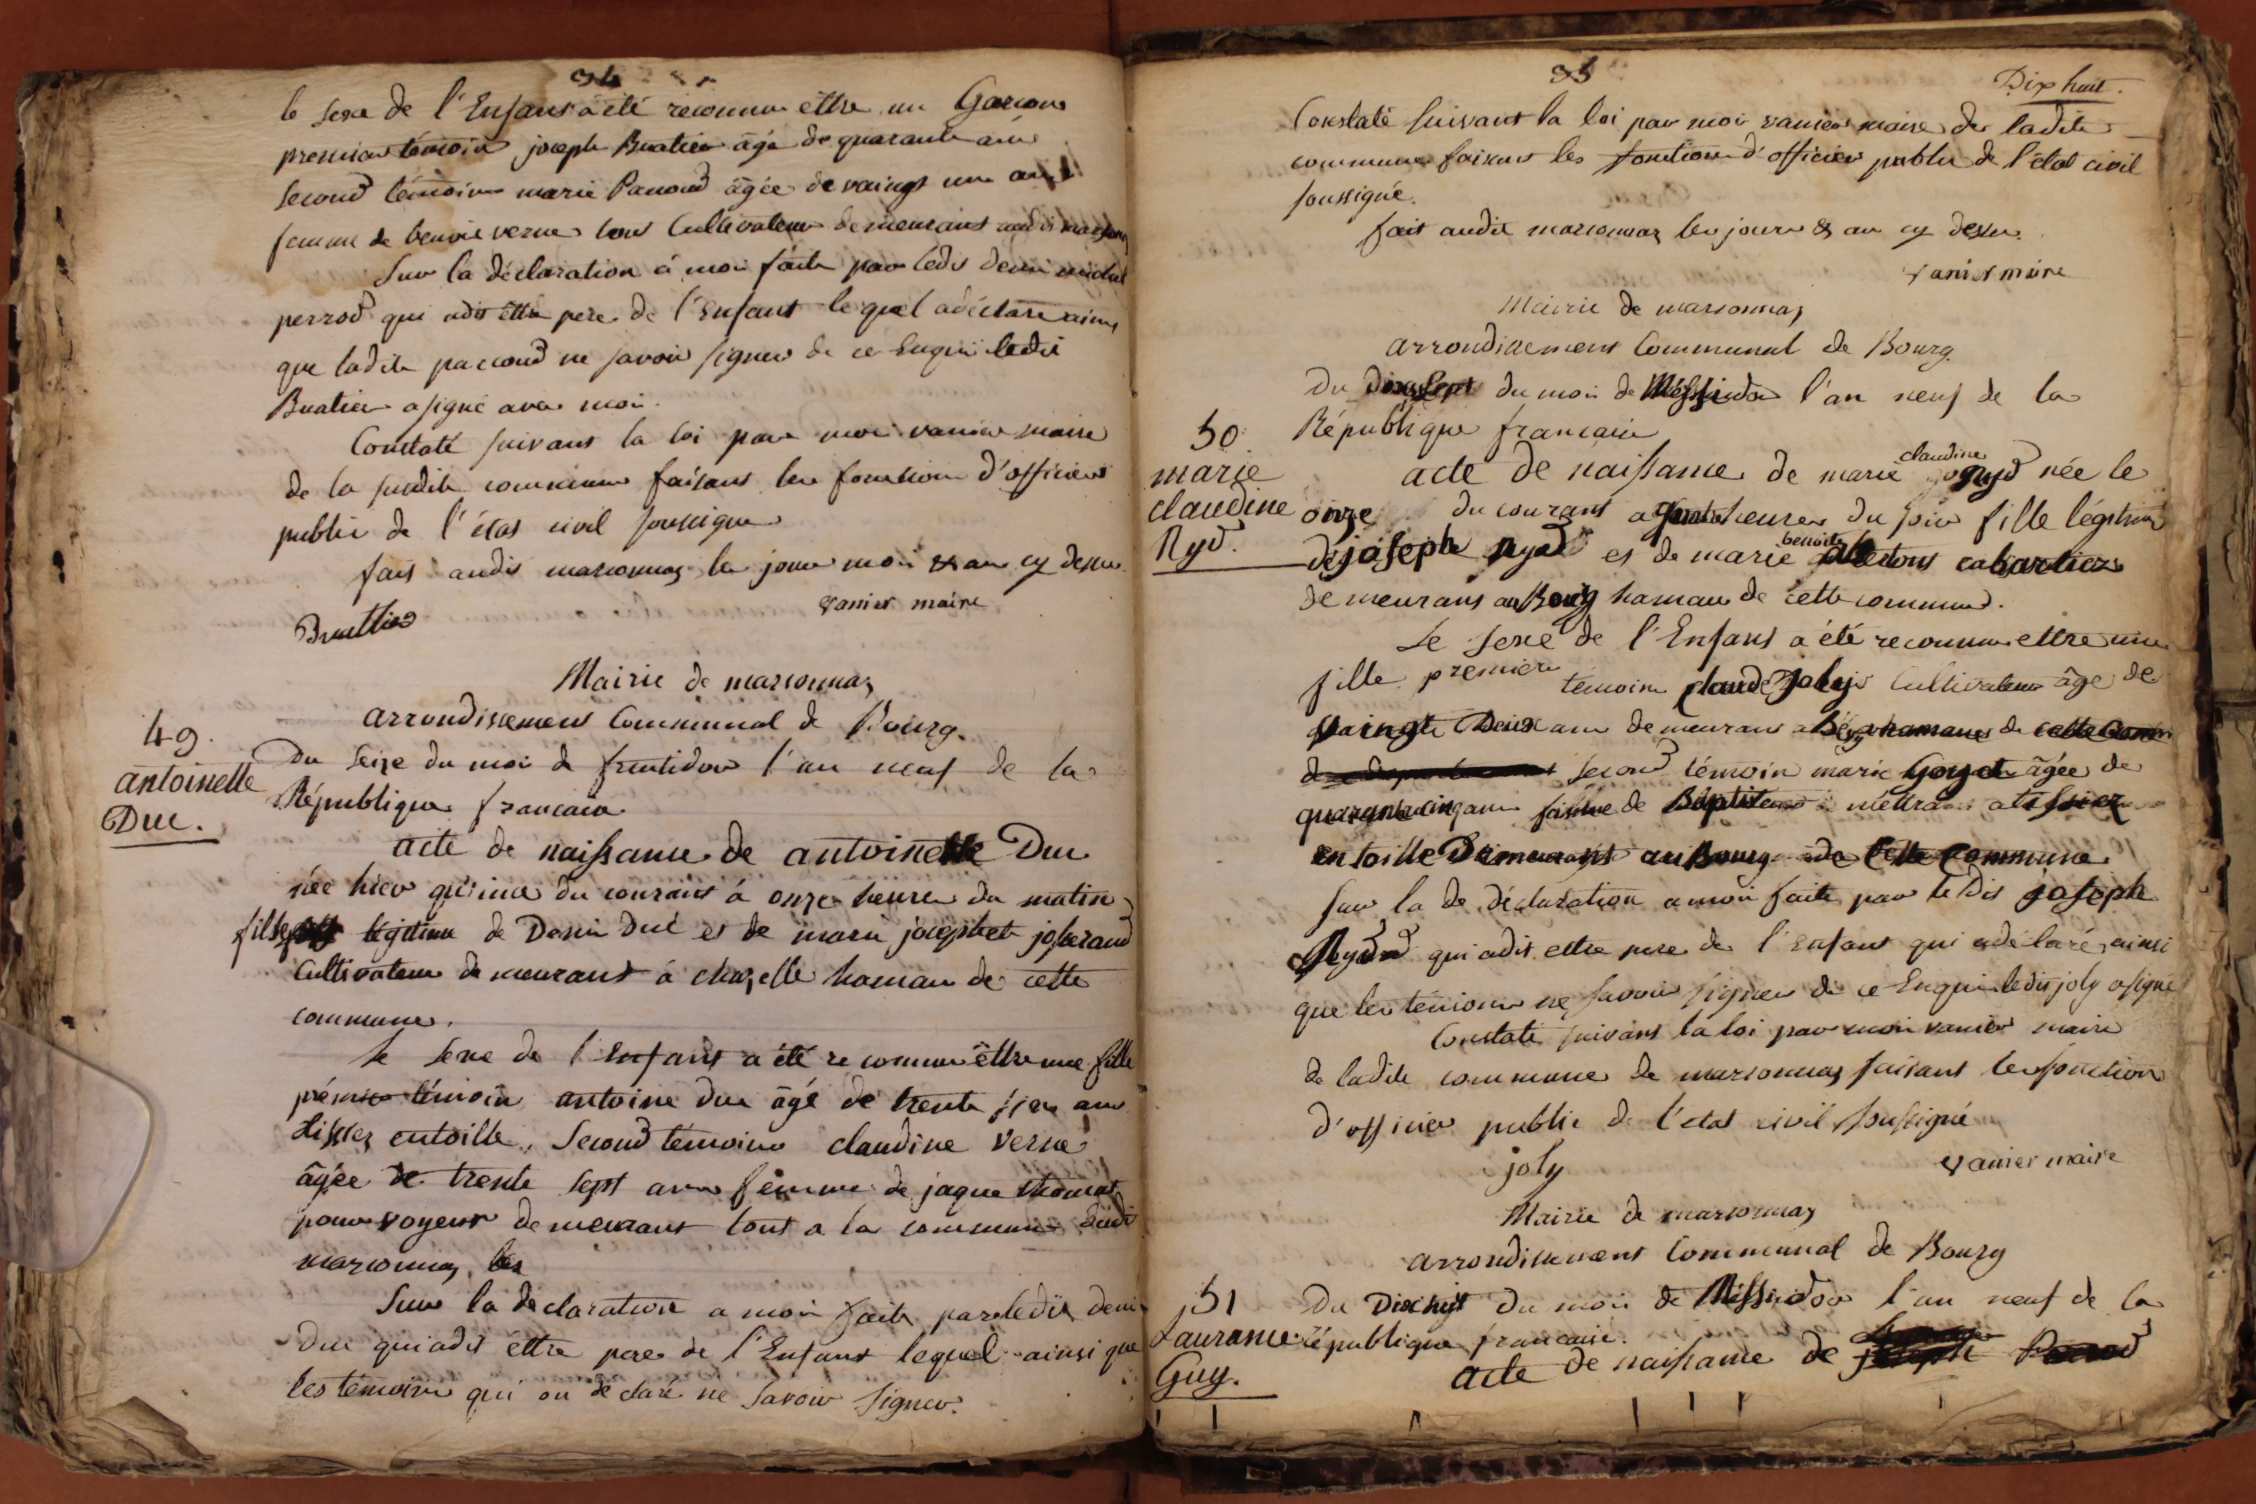 34
le sexe de l'Enfant a été reconnu ettre un Garcon
premier témoin joseph Buatier âgé de quarante ans
second témoin marie Panoud âgée de vaingt un ans
femme de benoit verne tous Cultivateur demeurant audit marsonnas
Sur la déclaration à moi faite par ledit denis michel
perrod qui adit êttre pere de l'Enfant lequel a déclaré ainsi
que ladite paccoud ne savoir signer de ce Enquis ledit
Buatier a signé avec moi.
Constaté suivant la loi par moi vanier maire
de la susdite commune faisant les fonction d'officier
public de l'état civil soussigné
fait audit marsonnas le jour moi & an cy dessu
vanier maire
Buattier
Mairie de marsonnas
arrondissement Communal de Bourg.
49.
antoinette
Duc.
Du seize du moi de fructidor l'an neuf de la
République francaise
acte de naissance de antoinette Duc
née hier quinze du courant à onze heure du matin
fille légitime de Denis Duc et de marie josephete joberand
Cultivateur demeurant à chazelle hamau de cette
commune.
Le sexe de l'Enfant a été reconnu êttre une fille
prémier témoin antoine duc âgé de trente six ans
tissier entoille, second témoins claudine verne
âgée de trente sept ans femme de jaque thomas
pourvoyeur demeurant tout a la commune dudit
marsonnas, les
Sur la déclaration a moi faite par ledit denis
Duc qui adit êttre pere de l'Enfant lequel ainsi que
les témoins qui on déclaré ne savoir signer.
35
Dix huit.
Constaté suivant la loi par moi vanier maire de ladite
commune faisant les fonction d'officier public de l'état civil
soussigné.
fait audit marsonnas les jour & an cy dessu.
vanier maire
Mairie de marsonnas
arrondissement Communal de Bourg.
Du Dixsept du moi de Messidor l'an neuf de la
République francaise
50
marie
claudine
Ryd.
acte de naissance de marie claudine Ryd née le
onze du courant a heures du soir fille légitime
de joseph Ryd et de marie benoite cabartier
demeurant au Bourg hamau de cette commune.
Le sexe de l'Enfant a été reconnu ettre une
fille premier témoin claude joly Cultivateur âge de
vaingt Deux ans demeurant a hamau de cette Comm
second témoin marie Goyet âgée de
quarante cinq ans femme de Baptiste tissier
en toille Demeurant au Bourg de Cette Commune
sur la de déclaration a moi faite par ledit joseph
Ryd qui adit ettre pere de l'Enfant qui a déclaré ainsi
que les témoins ne savoir signer de ce Enquis ledit joly a signé
Constaté suivant la loi par moi vanier maire
de ladite commune de marsonnas faisant les fonction
d'officier public de l'état civil soussigné
joly
vanier maire
Mairie de marsonnas
arrondissement Communal de Bourg
51
Laurance
Guy.
Du Dixhuit du moi de Messidor l'an neuf de la
République francaise.
acte de naissance de